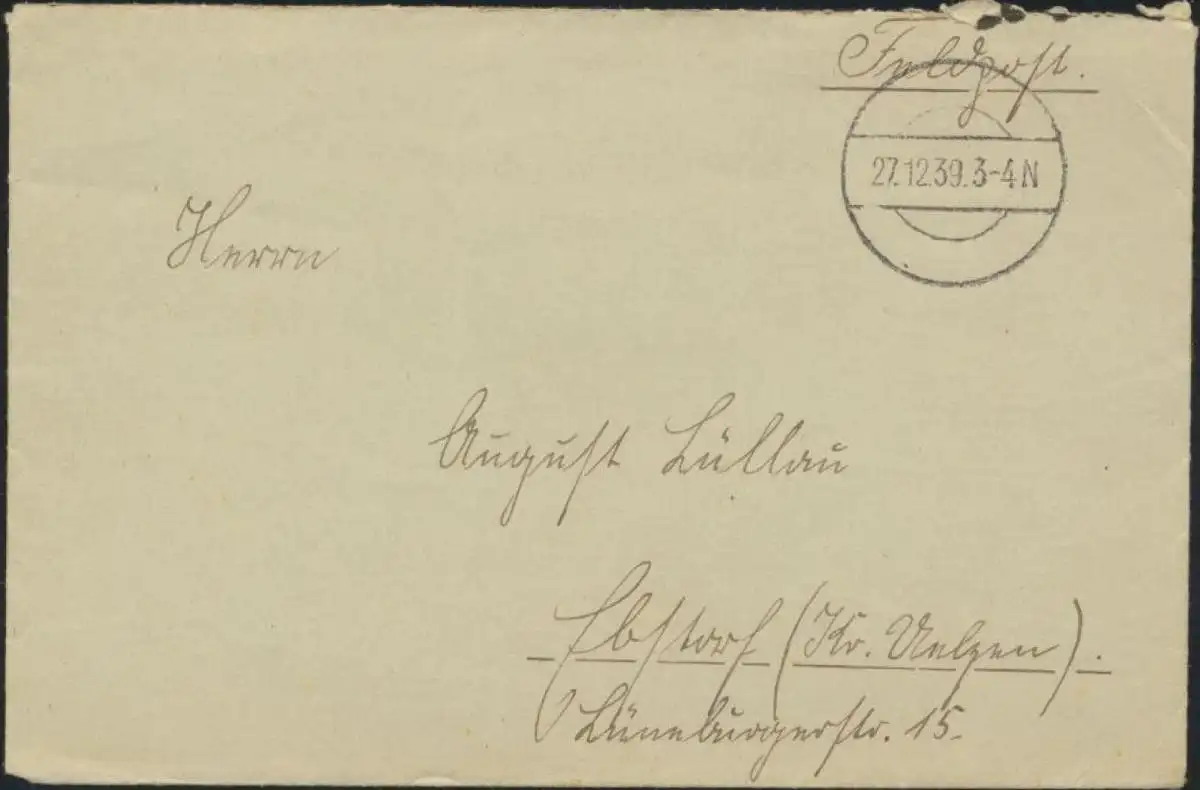 Feldpost.
27.12.39.3-4N
Herrn
August Lüllau
Ebstorf (Kr. Uelzen).
Lüneburgerstr. 15.